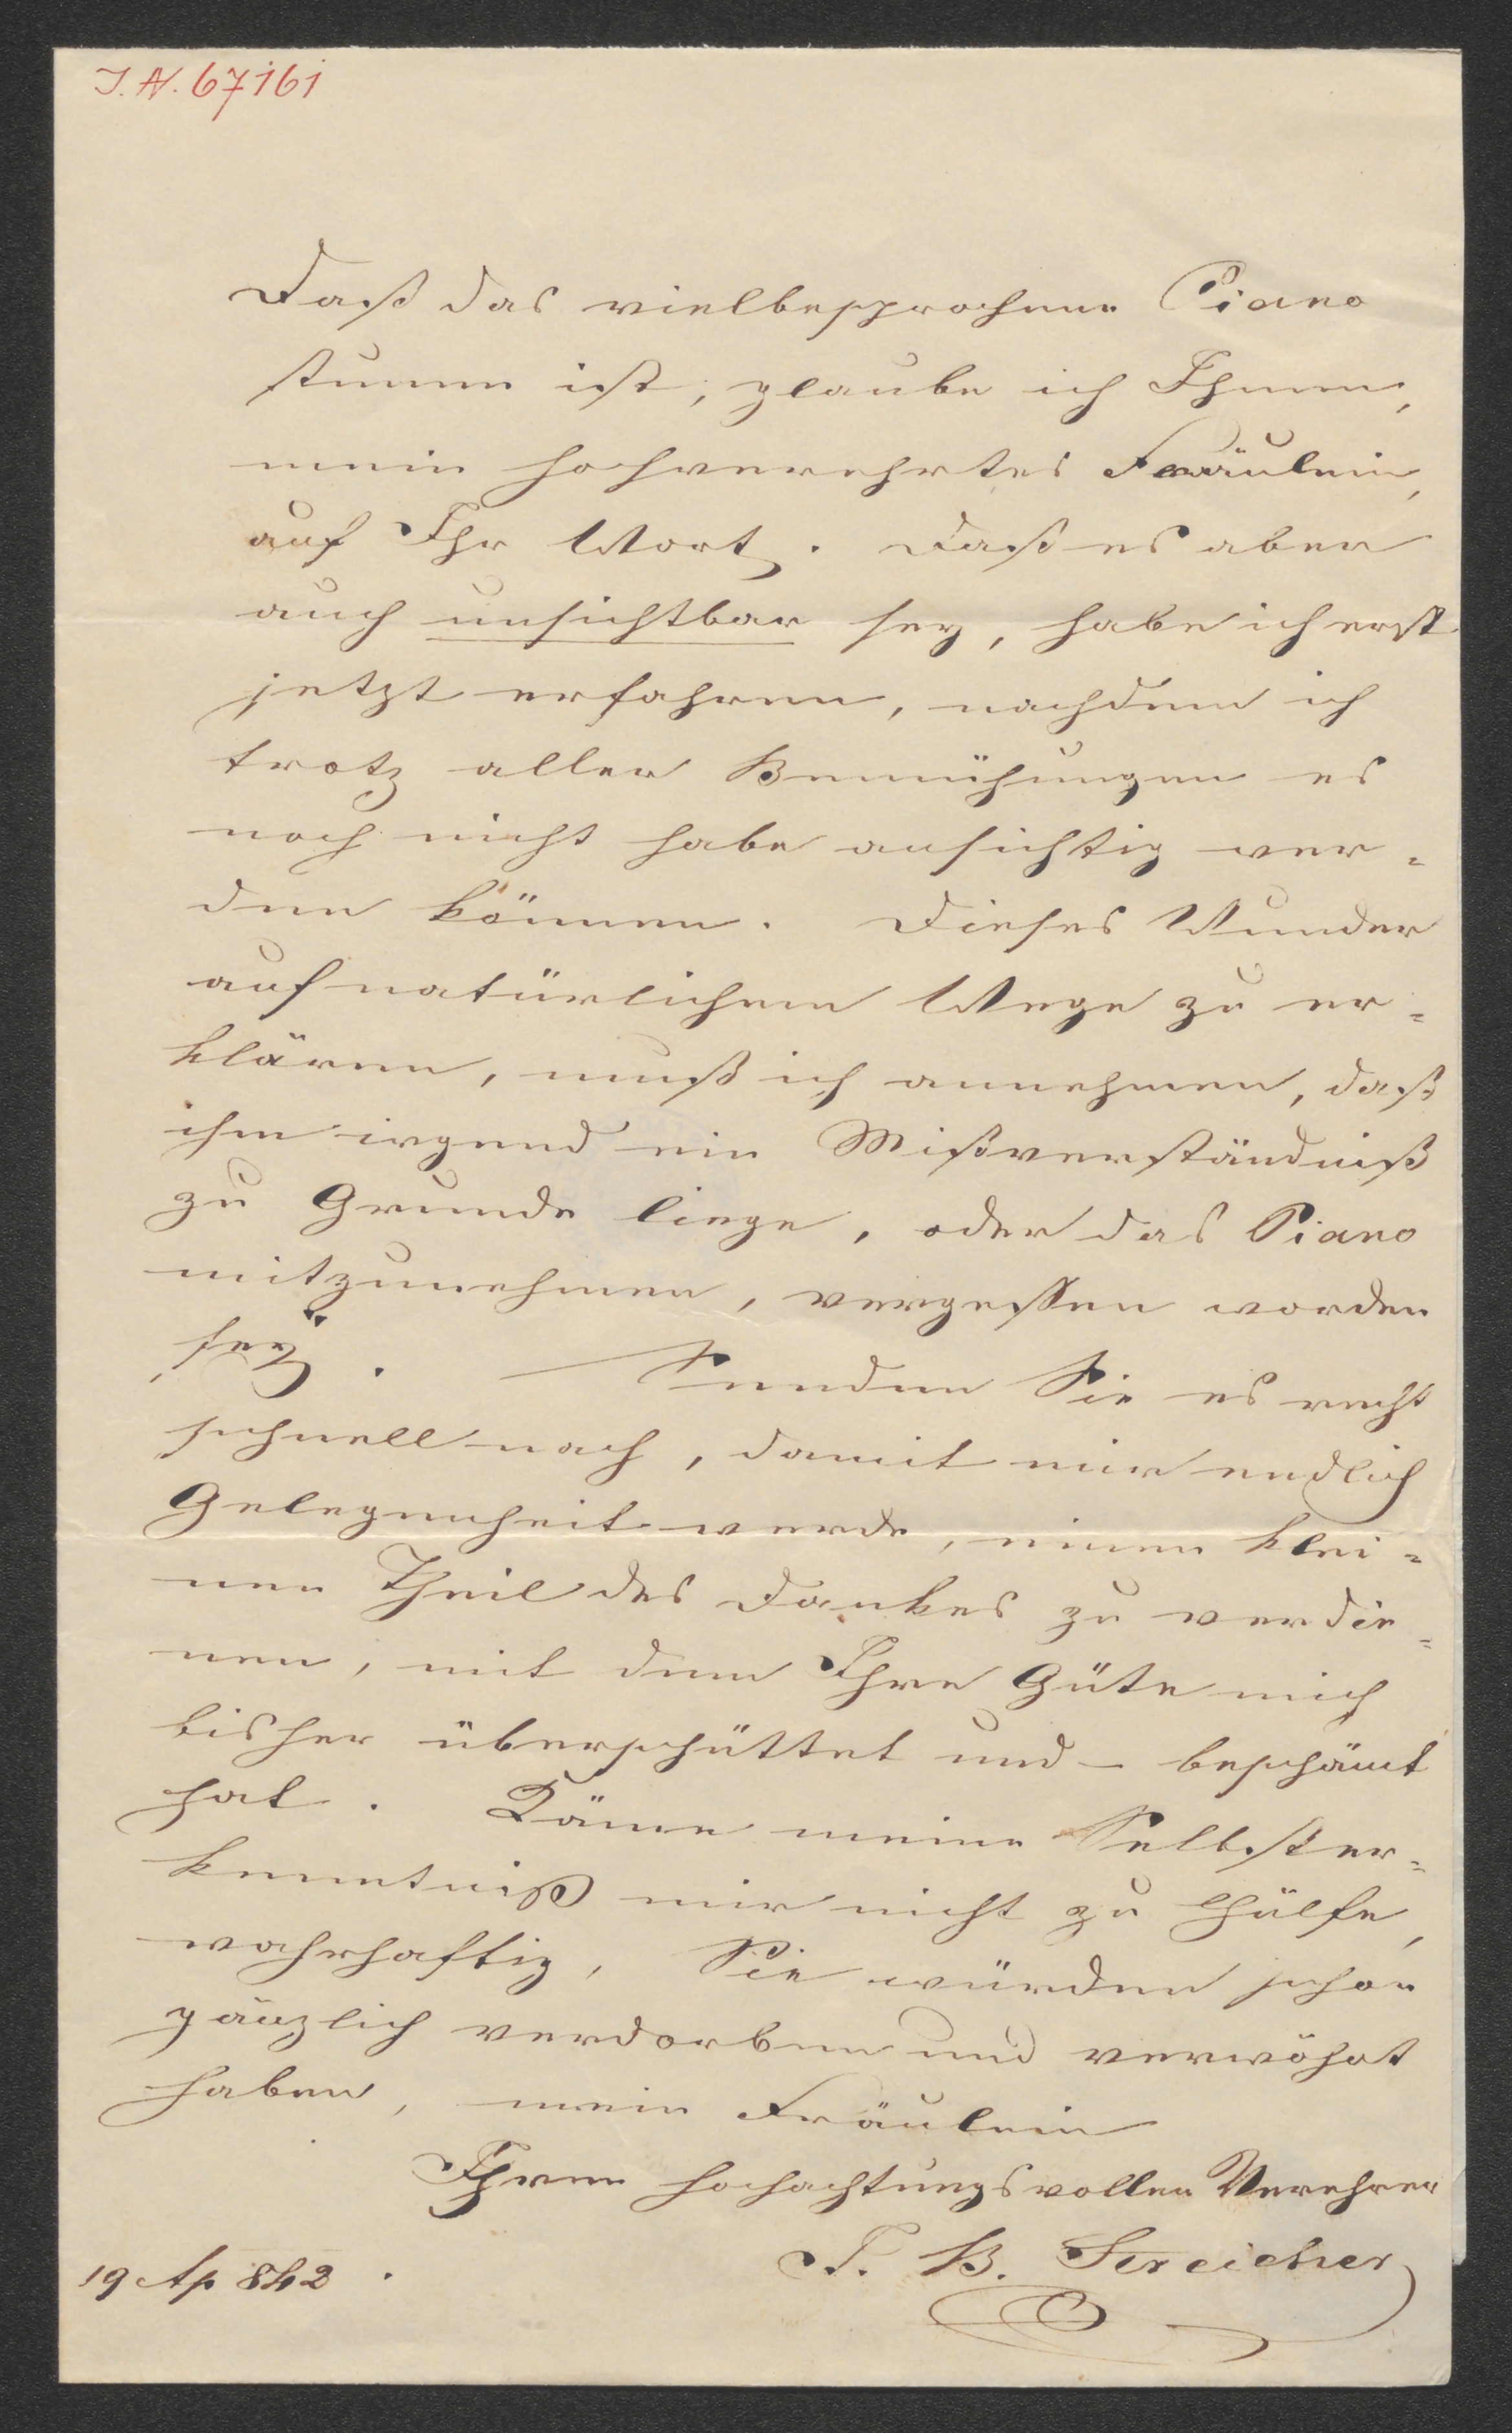 I. N. 67161
Daß das vielbesprochene Piano
stumm ist, glaube ich Ihnen,
mein hochverehrtes Fräulein,
auf Ihr Wort. Daß es aber
auch unsichtbar sey, habe ich erst
jetzt erfahren, nachdem ich
trotz aller Bemühungen es
noch nicht habe ansichtig wer=
den können. Dieses Wunder
auf natürlichem Wege zu er=
klären, muß ich annehmen, daß
ihm irgend ein Mißverständniß
zu Grunde liege, oder das Piano
mitzunehmen, vergessen worden
sey. — Senden Sie es recht
schnell nach, damit mir endlich
Gelegenheit werde, einen klei=
nen Theil des Dankes zu verdie=
nen, mit dem Ihre Güte mich
bisher überschüttet und – beschämt
hat. Käme meine Selbster=
kenntniß mir nicht zu Hülfe,
wahrhaftig, Sie würden schon
gänzlich verdorben und verwöhnt
haben, mein Fräulein
Ihren hochachtungsvollen Verehrer
J. B. Streicher
19 Ap 842.